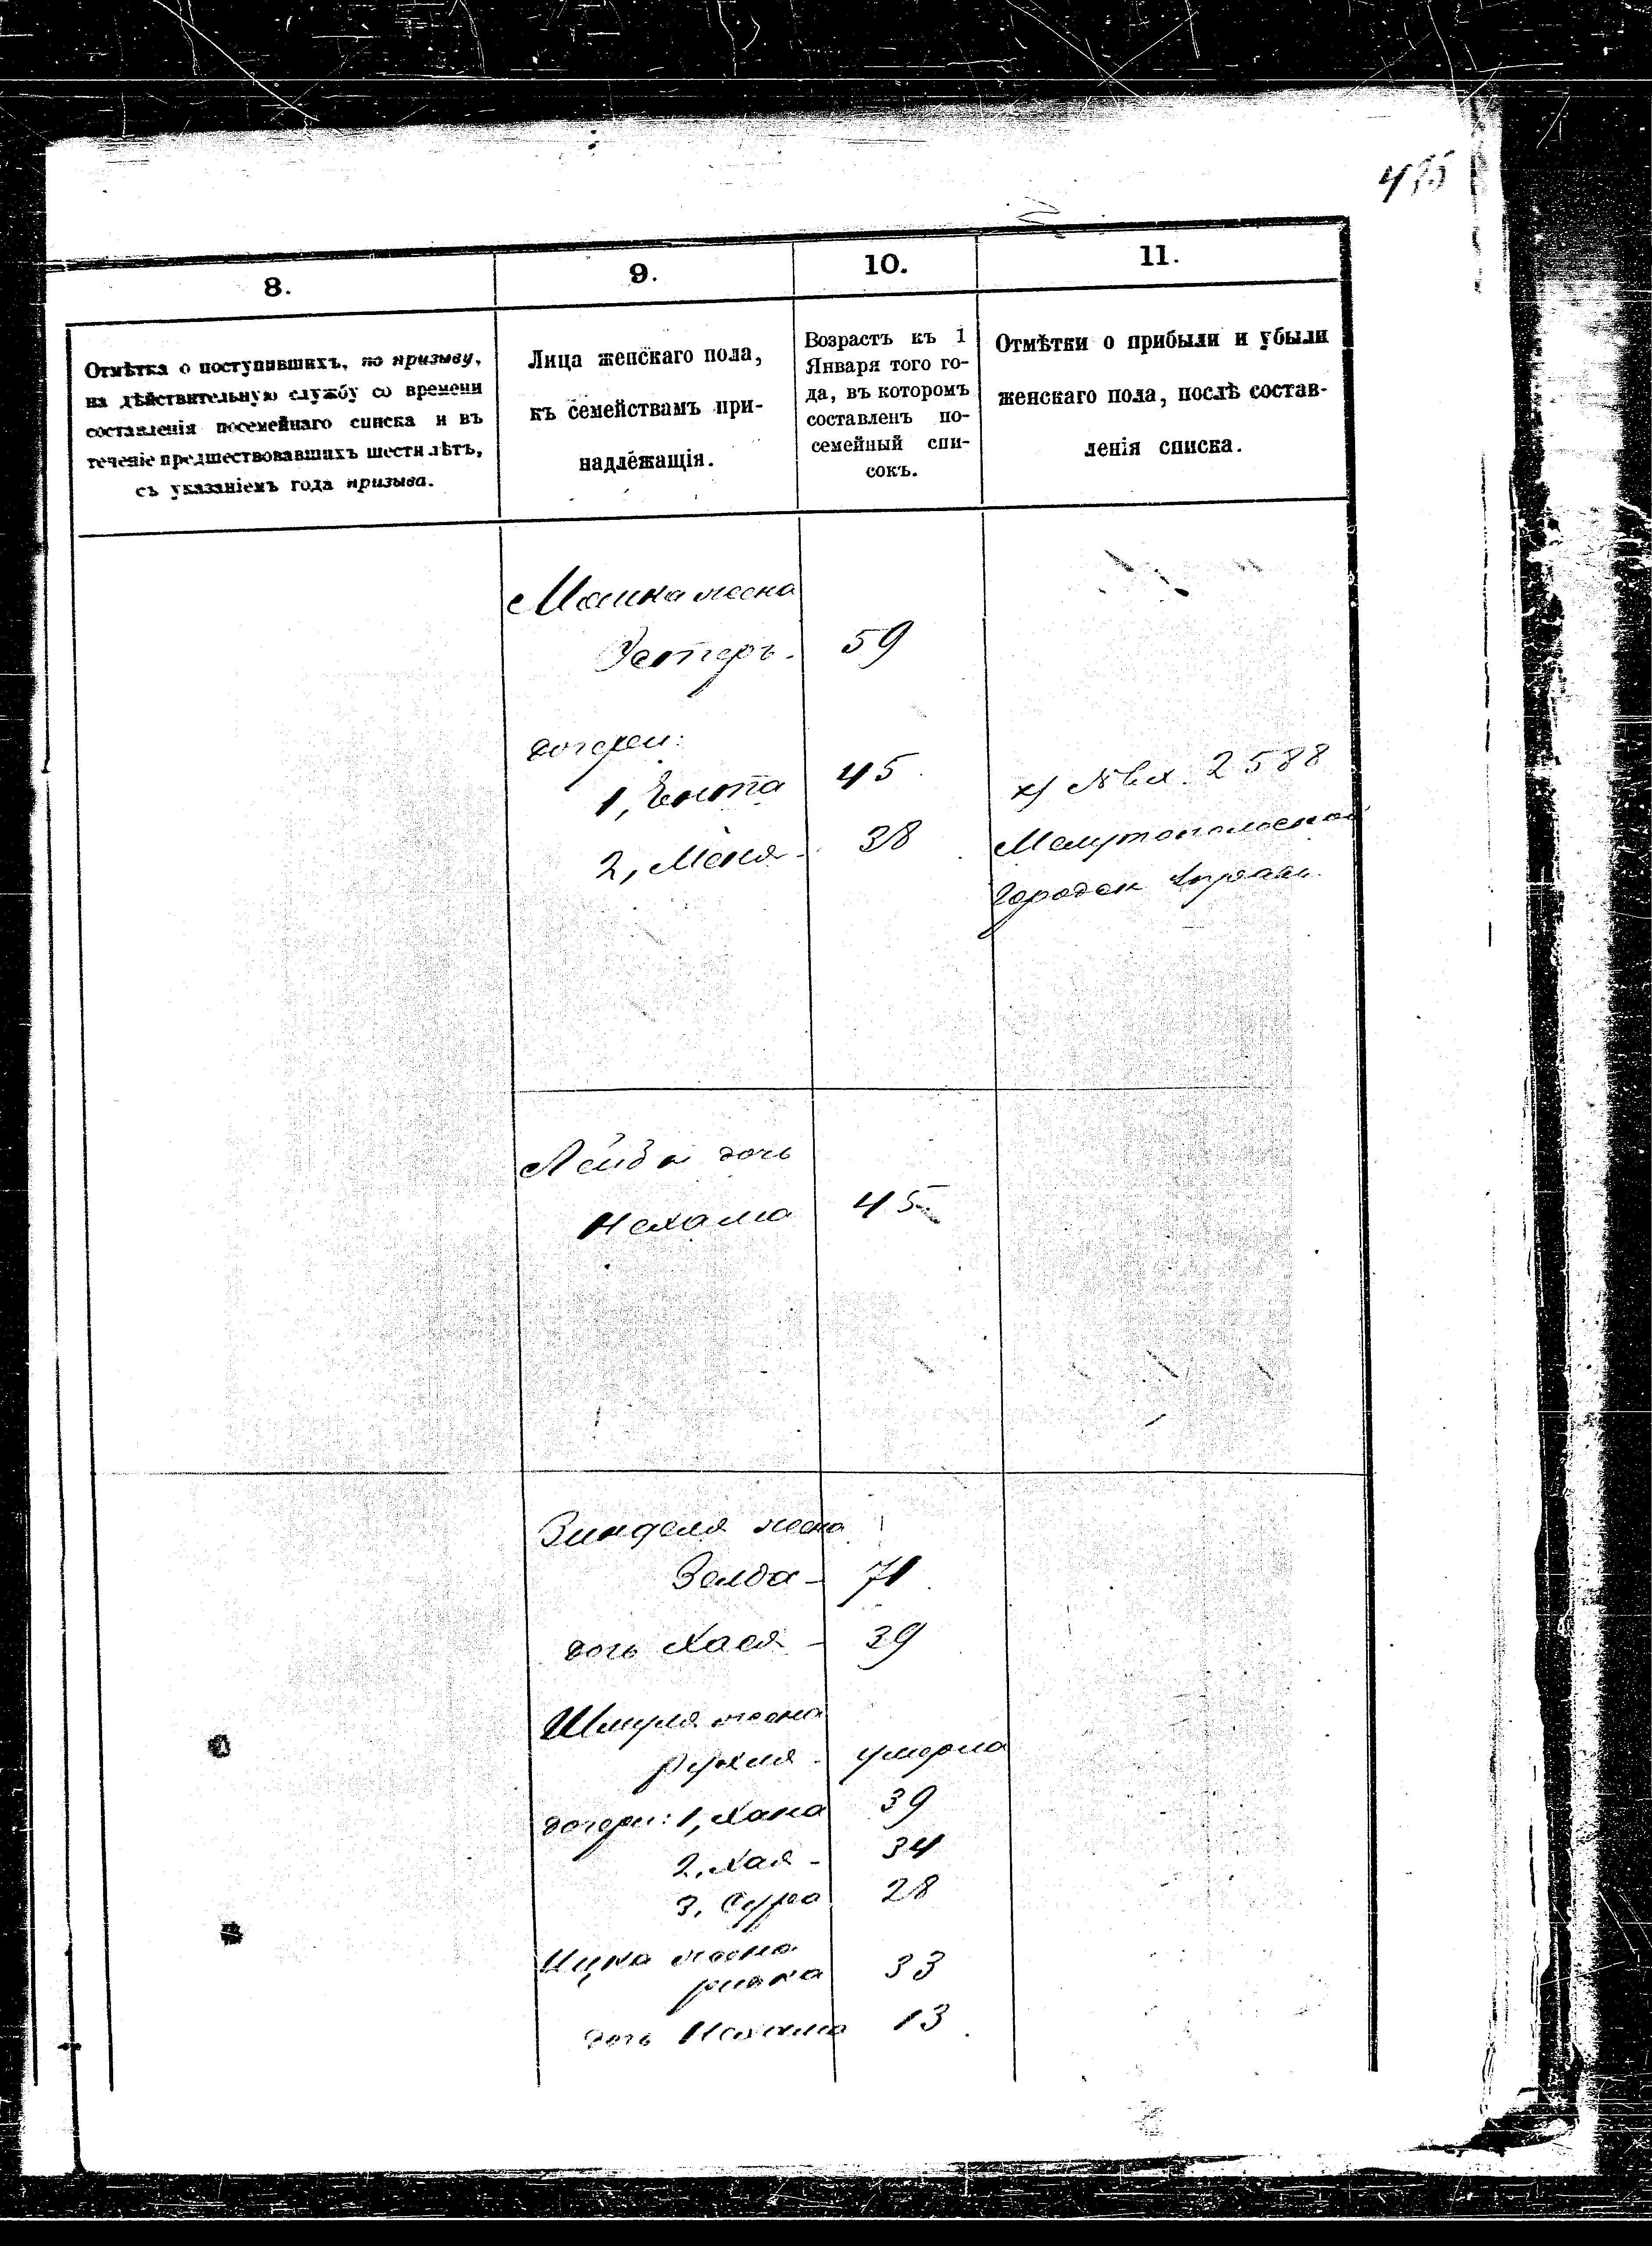 8.
9.
10.
11.
Отмѣтка о поступившихъ, по призыву,
на дѣйствительную службу со времени
составленія посемейнаго списка и въ
теченіе предшествовавшихъ шести лѣтъ,
съ указаніемъ года призыва.
Лица женскаго пола,
къ семействамъ при-
надлежащія.
Возрастъ къ 1
Января того го-
да, въ которомъ
составленъ по-
семейный спи-
сокъ.
Отмѣтки о прибыли и убыли
женскаго пола, послѣ состав-
ленія списка.
жена
Эстеръ. 59
дочери:
1, Ента 45
2, Меня - 38
х) № вх. 2588
Мелитопольской
Городск Управы
Лейбы дочь
Нехама 45
Зинделя жена
Зелда - 71
дочь Хася - 39
Шмуля жена
Рухля - умерла
дочери: 1, Хана 39
2, Хая - 34
3, Сура 28
Ицка жена
33
дочь Нехама 13